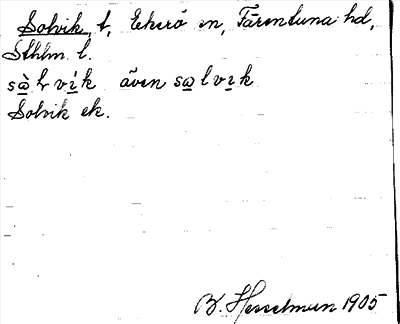 Solvik, t, Ekerö sn, Färentuna hd,
Sthlm l.
sò̱lvi̱k även so̱lvi̱k
Solvik ek.
B. Hesselman 1905